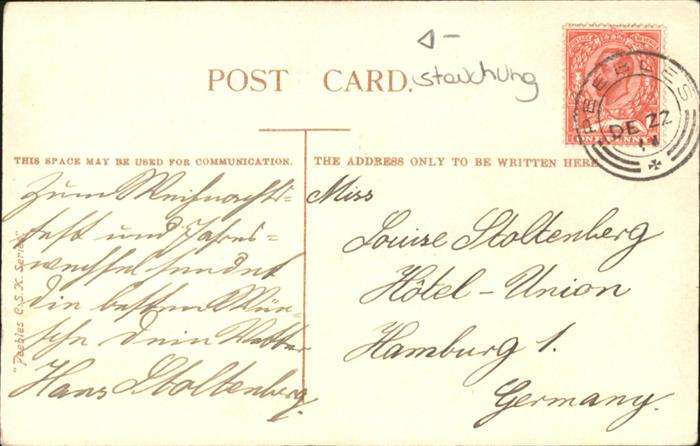 stauchung
POST CARD.
PEEBLES
DE 22
11
ONE PENNY
THIS SPACE MAY BE USED FOR COMMUNICATION.
THE ADDRESS ONLY TO BE WRITTEN HERE
Zum Weihnachts-
fest und Jahres-
wechsel sendet
die besten Wün-
sche Dein Vetter
Hans Stoltenberg.
Miss
Louise Stoltenberg
Hôtel - Union
Hamburg 1.
Germany.
"Peebles C.S.K. Series"